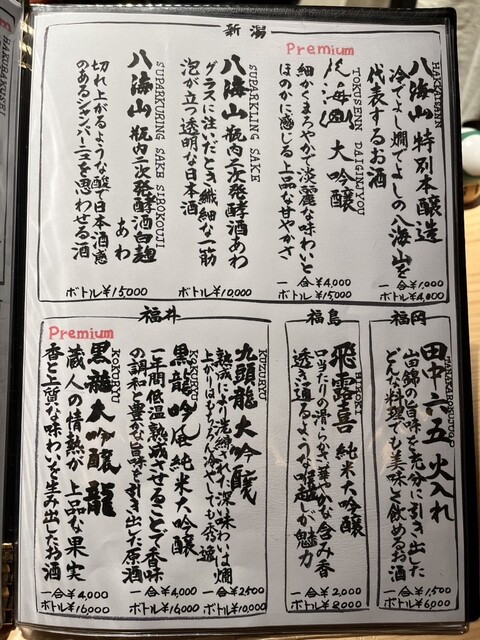 新潟
HAKKAISANN
八海山 特別本醸造
冷でよし燗でよしの八海山を
代表するお酒
一合¥1,000
ボトル¥4,000
Premium
TOKUSENN DAIGINJYOU
八海山 大吟醸
細かくまろやかで淡麗な味わいと
ほのかに感じる上品な甘やかさ
一合¥4,000
ボトル¥15000
SUPARKULING SAKE
八海山 瓶内二次発酵酒あわ
グラスに注いだとき繊細な一筋
泡が立つ透明な日本酒
ボトル¥10,000
SUPARKURING SAKE SIROKOUJI
八海山 瓶内二次発酵酒白麹
あわ
切れ上がるような酸で日本酒感
のあるシャンパーニュを思わせる酒
ボトル¥15000
福岡
TANAKAROKUJUGO
田中六五 火入れ
山田錦の旨味を充分に引き出した
どんな料理でも美味と飲めるお酒
一合¥1,500
ボトル¥6,000
福島
HIROKI
飛露喜 純米大吟醸
口当たりの滑らかさ華やかな含み香
透き通るような喉越しが魅力
一合¥2,000
ボトル¥8000
福井
KUZURYU
九頭龍 大吟醸
熟成により洗練された深い味わいは燗
上がりはもちろん冷やしても秀逸
一合¥2500
ボトル¥10,000
KOKURYU
黒龍 吟風 純米大吟醸
一年間低温熟成させることで香味
の調和と豊かな旨味を引き出した原酒
一合¥4,000
ボトル¥16000
Premium
KOKURYU
黒龍 大吟醸 龍
蔵人の情熱が上品な果実
香と上質な味わいを生み出したお酒
一合¥4,000
ボトル¥16,000